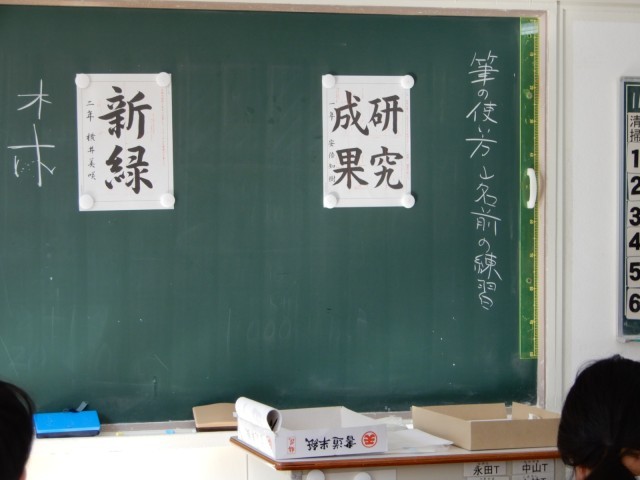 筆の使い方、名前の練習
研究
成果
一年 安倍和樹
新緑
二年 横井美咲
木
清掃
1
2
3
4
5
6
書道半紙
永田T
中山T